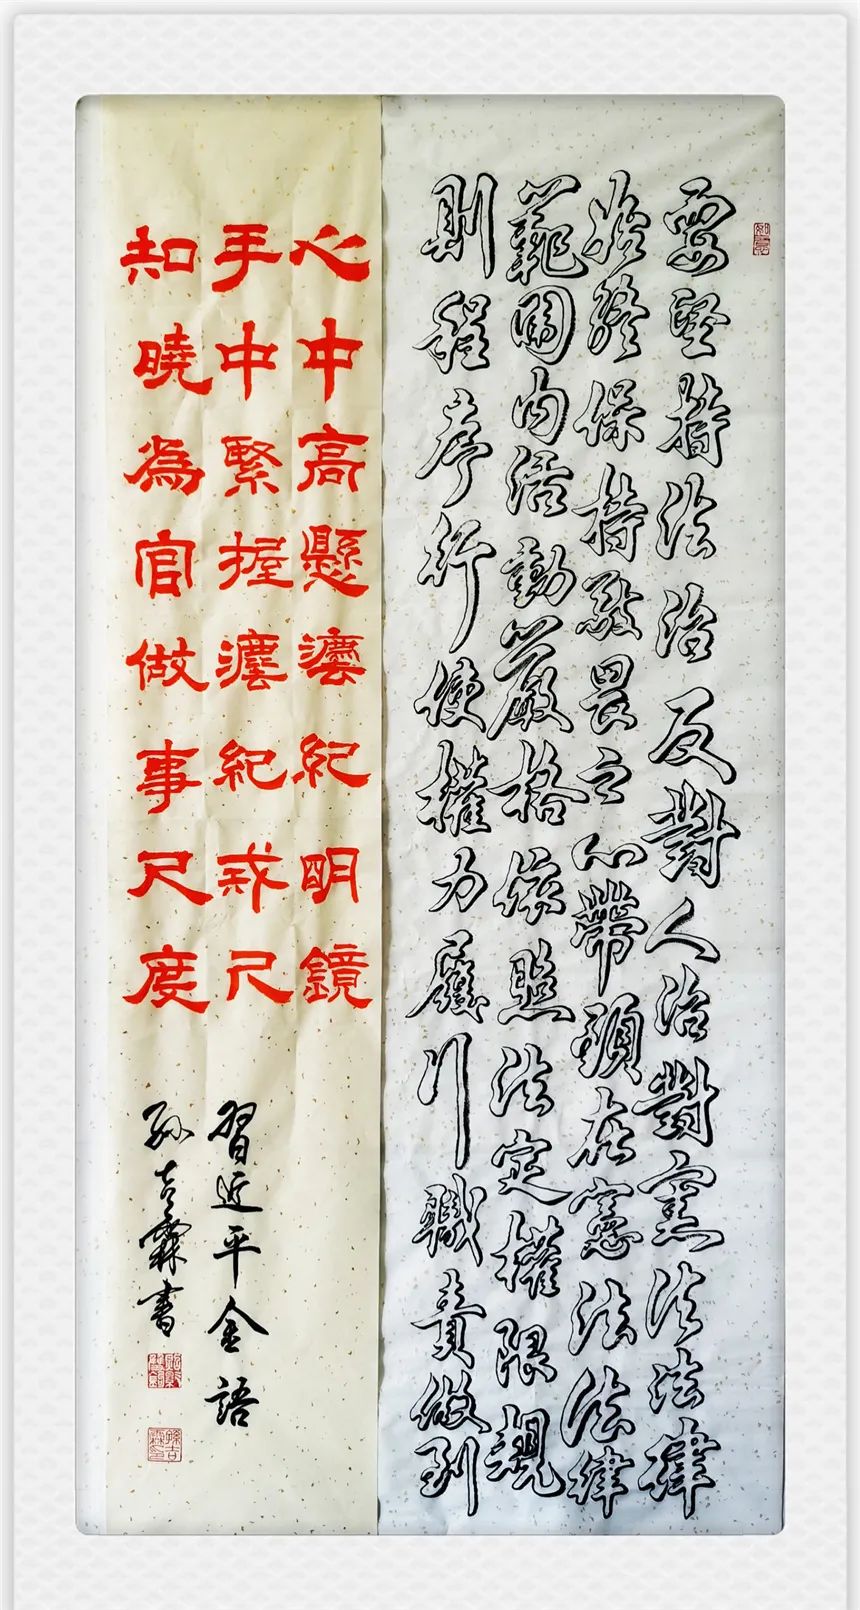 要堅持法治反對人治對憲法法律
始終保持敬畏之心帶頭在憲法法律
範圍內活動嚴格依照法定權限規
則程序行使權力履行職責做到
心中高懸灋紀明鏡
手中緊握灋紀戒尺
知曉為官做事尺度
習近平金語
孫吉霖書